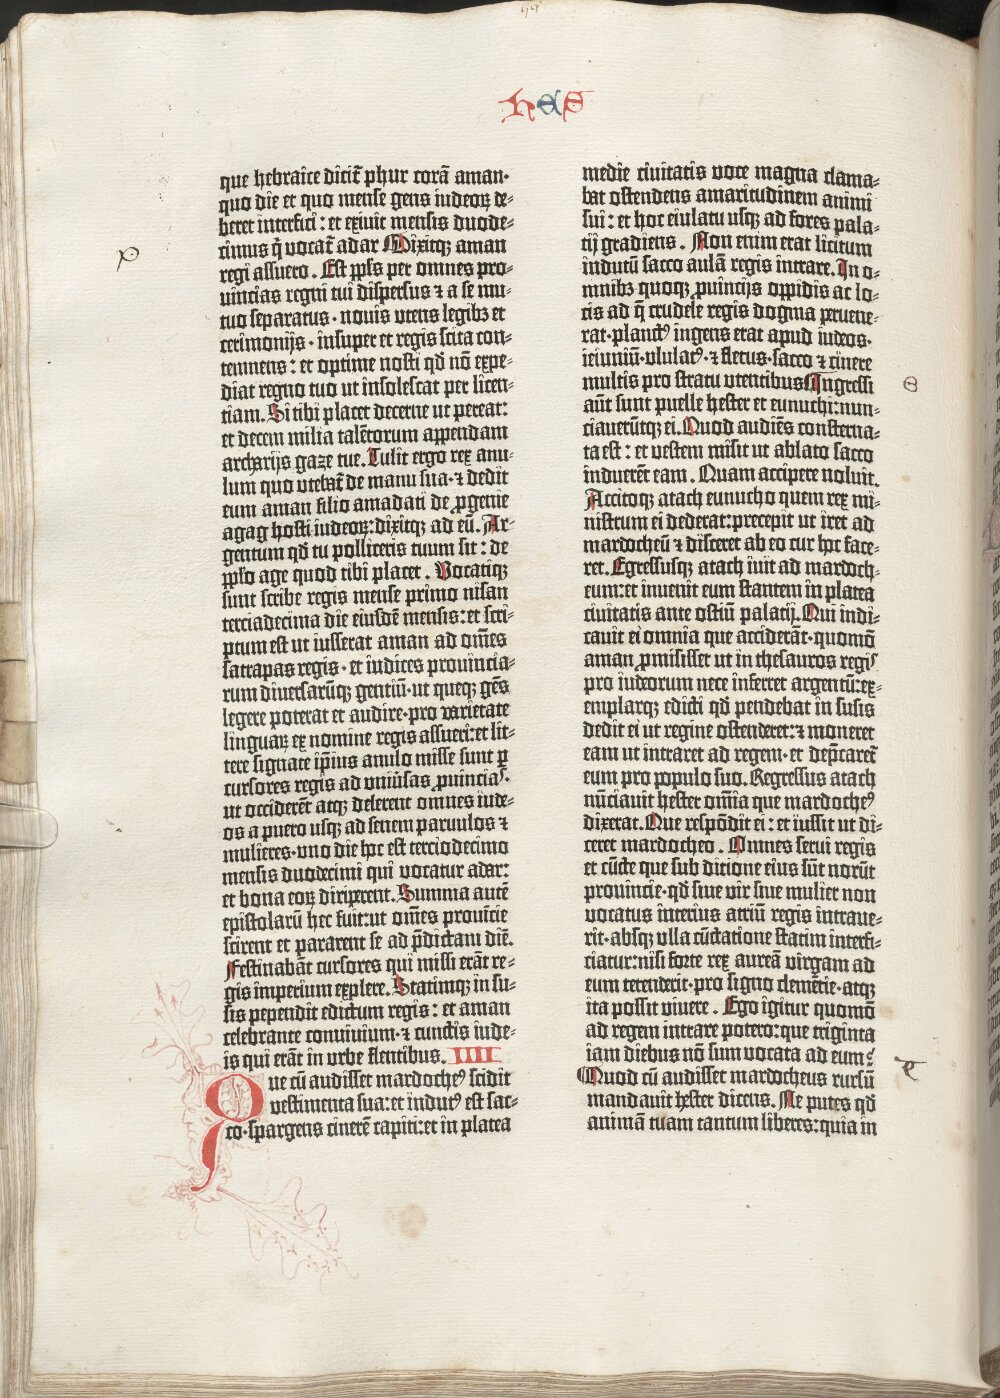 hes
que hebraice dicit᷑ phur corā aman·
quo die et quo mense gens iudeoꝝ de-
beret interfici : et exiuit mensis duode-
cimus q̄ vocat᷑ adar Dixitqꝫ aman
regi assuero . Est pp̄ls per omnes pro-
uincias regni tui dispersus ⁊ a se mu-
tuo separatus · nouis vtens legibꝫ et
cerimonijs · insuper et regis scita con-
temnens : et optime nosti qđ nō expe-
diat regno tuo ut insolescat per licen-
tiam . Si tibi placet decerne ut pereat:
et decem milia talētorum appendam
archarijs gaze tue . Tulit ergo rex anu-
lum quo vtebat᷑ de manu sua · ⁊ dedit
eum aman filio amadati de ꝓgenie
agag hosti iudeoꝝ: dixitqꝫ ad eū . Ar-
gentum qđ tu polliceris tuum sit : de
pp̄lo age quod tibi placet . Vocatiqꝫ
sunt scribe regis mense primo nisan
terciadecima die eiusdē mensis: et scri-
ptum est ut iusserat aman ad om̄es
satrapas regis · et iudices prouincia-
rum diuersarūqꝫ gentiū · ut queqꝫ gēs
legere poterat et audire · pro varietate
linguaꝝ ex nomine regis assueri: et lit-
tere signate ip̄ius anulo misse sunt ꝑ
cursores regis ad vniūsas ꝓuincias ·
ut occiderēt atqꝫ delerent omnes iude-
os a puero usqꝫ ad senem paruulos ⁊
mulieres · vno die hoc est terciodecimo
mensis duodecimi qui vocatur adar:
et bona eoꝝ diriperent . Summa autē
epistolarū hec fuit: ut om̄es prouīcie
scirent et pararent se ad p̄dictam diē.
Festinabāt cursores qui missi erāt re-
gis imperium explere . Statimqꝫ in su-
sis pependit edictum regis : et aman
celebrante conuiuium · ⁊ cunctis iude-
is qui erāt in vrbe flentibus . IIII
Que cū audisset mardocheꝰ scidit
vestimenta sua: et indutꝰ est sac-
co · spargens cinerē capiti: et in platea
medie ciuitatis voce magna clama-
bat ostendens amaritudinem animi
sui : et hoc eiulatu usqꝫ ad fores pala-
tij gradiens . Non enim erat licitum
indutū sacco aulā regis intrare . In o-
mnibꝫ quoqꝫ ꝓuincijs oppidis ac lo-
cis ad q̄ crudele regis dogma perue ne-
rat · planctꝰ ingens erat apud iudeos ·
ieiuniū · vlulatꝰ · ⁊ fletus · sacco ⁊ cinere
multis pro stratu vtentibus Ingressi
aūt sunt puelle hester et eunuchi: nun-
ciauerūtqꝫ ei . Quod audiēs consterna-
ta est : et vestem misit ut ablato sacco
induerēt eam . Quam accipere noluit.
Accitoqꝫ atach eunucho quem rex mi-
nistrum ei dederat: precepit ut iret ad
mardocheū ⁊ disceret ab eo cur hoc face-
ret . Egressusqꝫ atach iuit ad mardoch-
eum: et inuenit eum stantem in platea
ciuitatis ante ostiū palatij . Qui indi-
cauit ei omnia que acciderāt · quomō
aman ꝓmisisset ut in thesauros regis
pro iudeorum nece inferret argentū: ex-
emplarqꝫ edicti qđ pendebat in susis
dedit ei ut regine ostenderet: ⁊ moneret
eam ut intraret ad regem · et dep̄caret᷑
eum pro populo suo . Regressus atach
nūciauit hester om̄ia que mardocheꝰ
dixerat . Que respōdit ei : et iussit ut di-
ceret mardocheo . Omnes serui regis
et cūcte que sub ditione eius sūt norūt
prouincie · qđ siue vir siue mulier non
vocatus interius atriū regis intraue-
rit · absqꝫ vlla cūctatione statim interfi-
ciatur: nisi forte rex aureā virgam ad
eum tetenderit · pro signo clemētie · atqꝫ
ita possit viuere . Ego igitur quomō
ad regem intrare potero: que triginta
iam diebus nō sum vocata ad eum ?
Quod cū audisset mardocheus rursū
mandauit hester dicens . Ne putes qđ
animā tuam tantum liberes: quia in